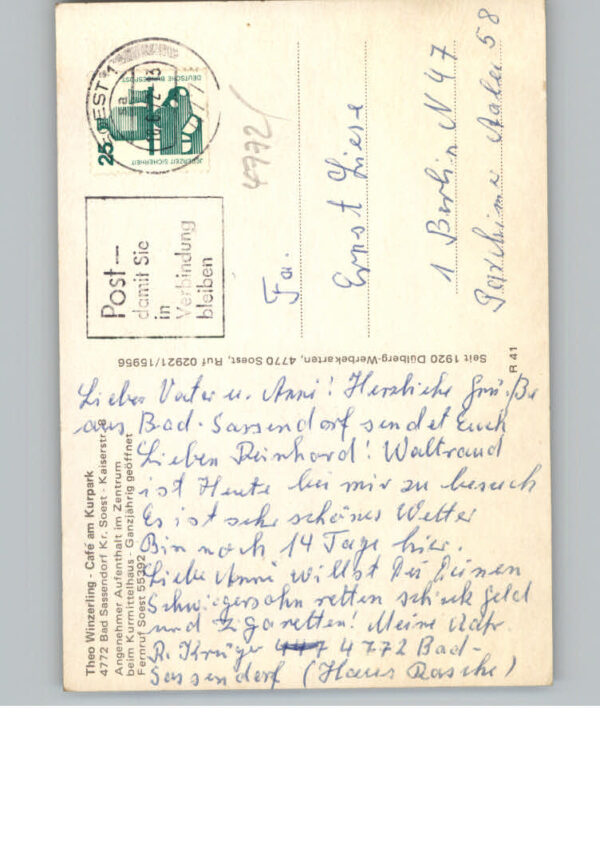 Theo Winzerling - Café am Kurpark
4772 Bad Sassendorf Kr. Soest - Kaiserstr. 8
Angenehmer Aufenthalt im Zentrum
beim Kurmittelhaus - Ganzjährig geöffnet
Fernruf Soest 55392
Lieber Vater u. Anni! Herzliche Grüße
aus Bad-Sassendorf sendet Euch
Lieben Reinhard! Waltraud
ist Heute bei mir zu besuch
Es ist sehr schönes Wetter
Bin noch 14 Tage hier.
Liebe Anni willst Du Deinen
Schwigersohn retten schick geld
und Zgaretten! Meine Adr.
R. Krüger 4772 Bad-
Sassendorf (Haus Rasche)
Seit 1920 Dülberg-Werbekarten, 4770 Soest, Ruf 02921/15956
R 41
SOEST 1
DEUTSCHE BUNDESPOST
25
JEDERZEIT SICHERHEIT
Post—
damit Sie
in
Verbindung
bleiben
4772
Fa.
Ernst Liese
1 Berlin N 47
58